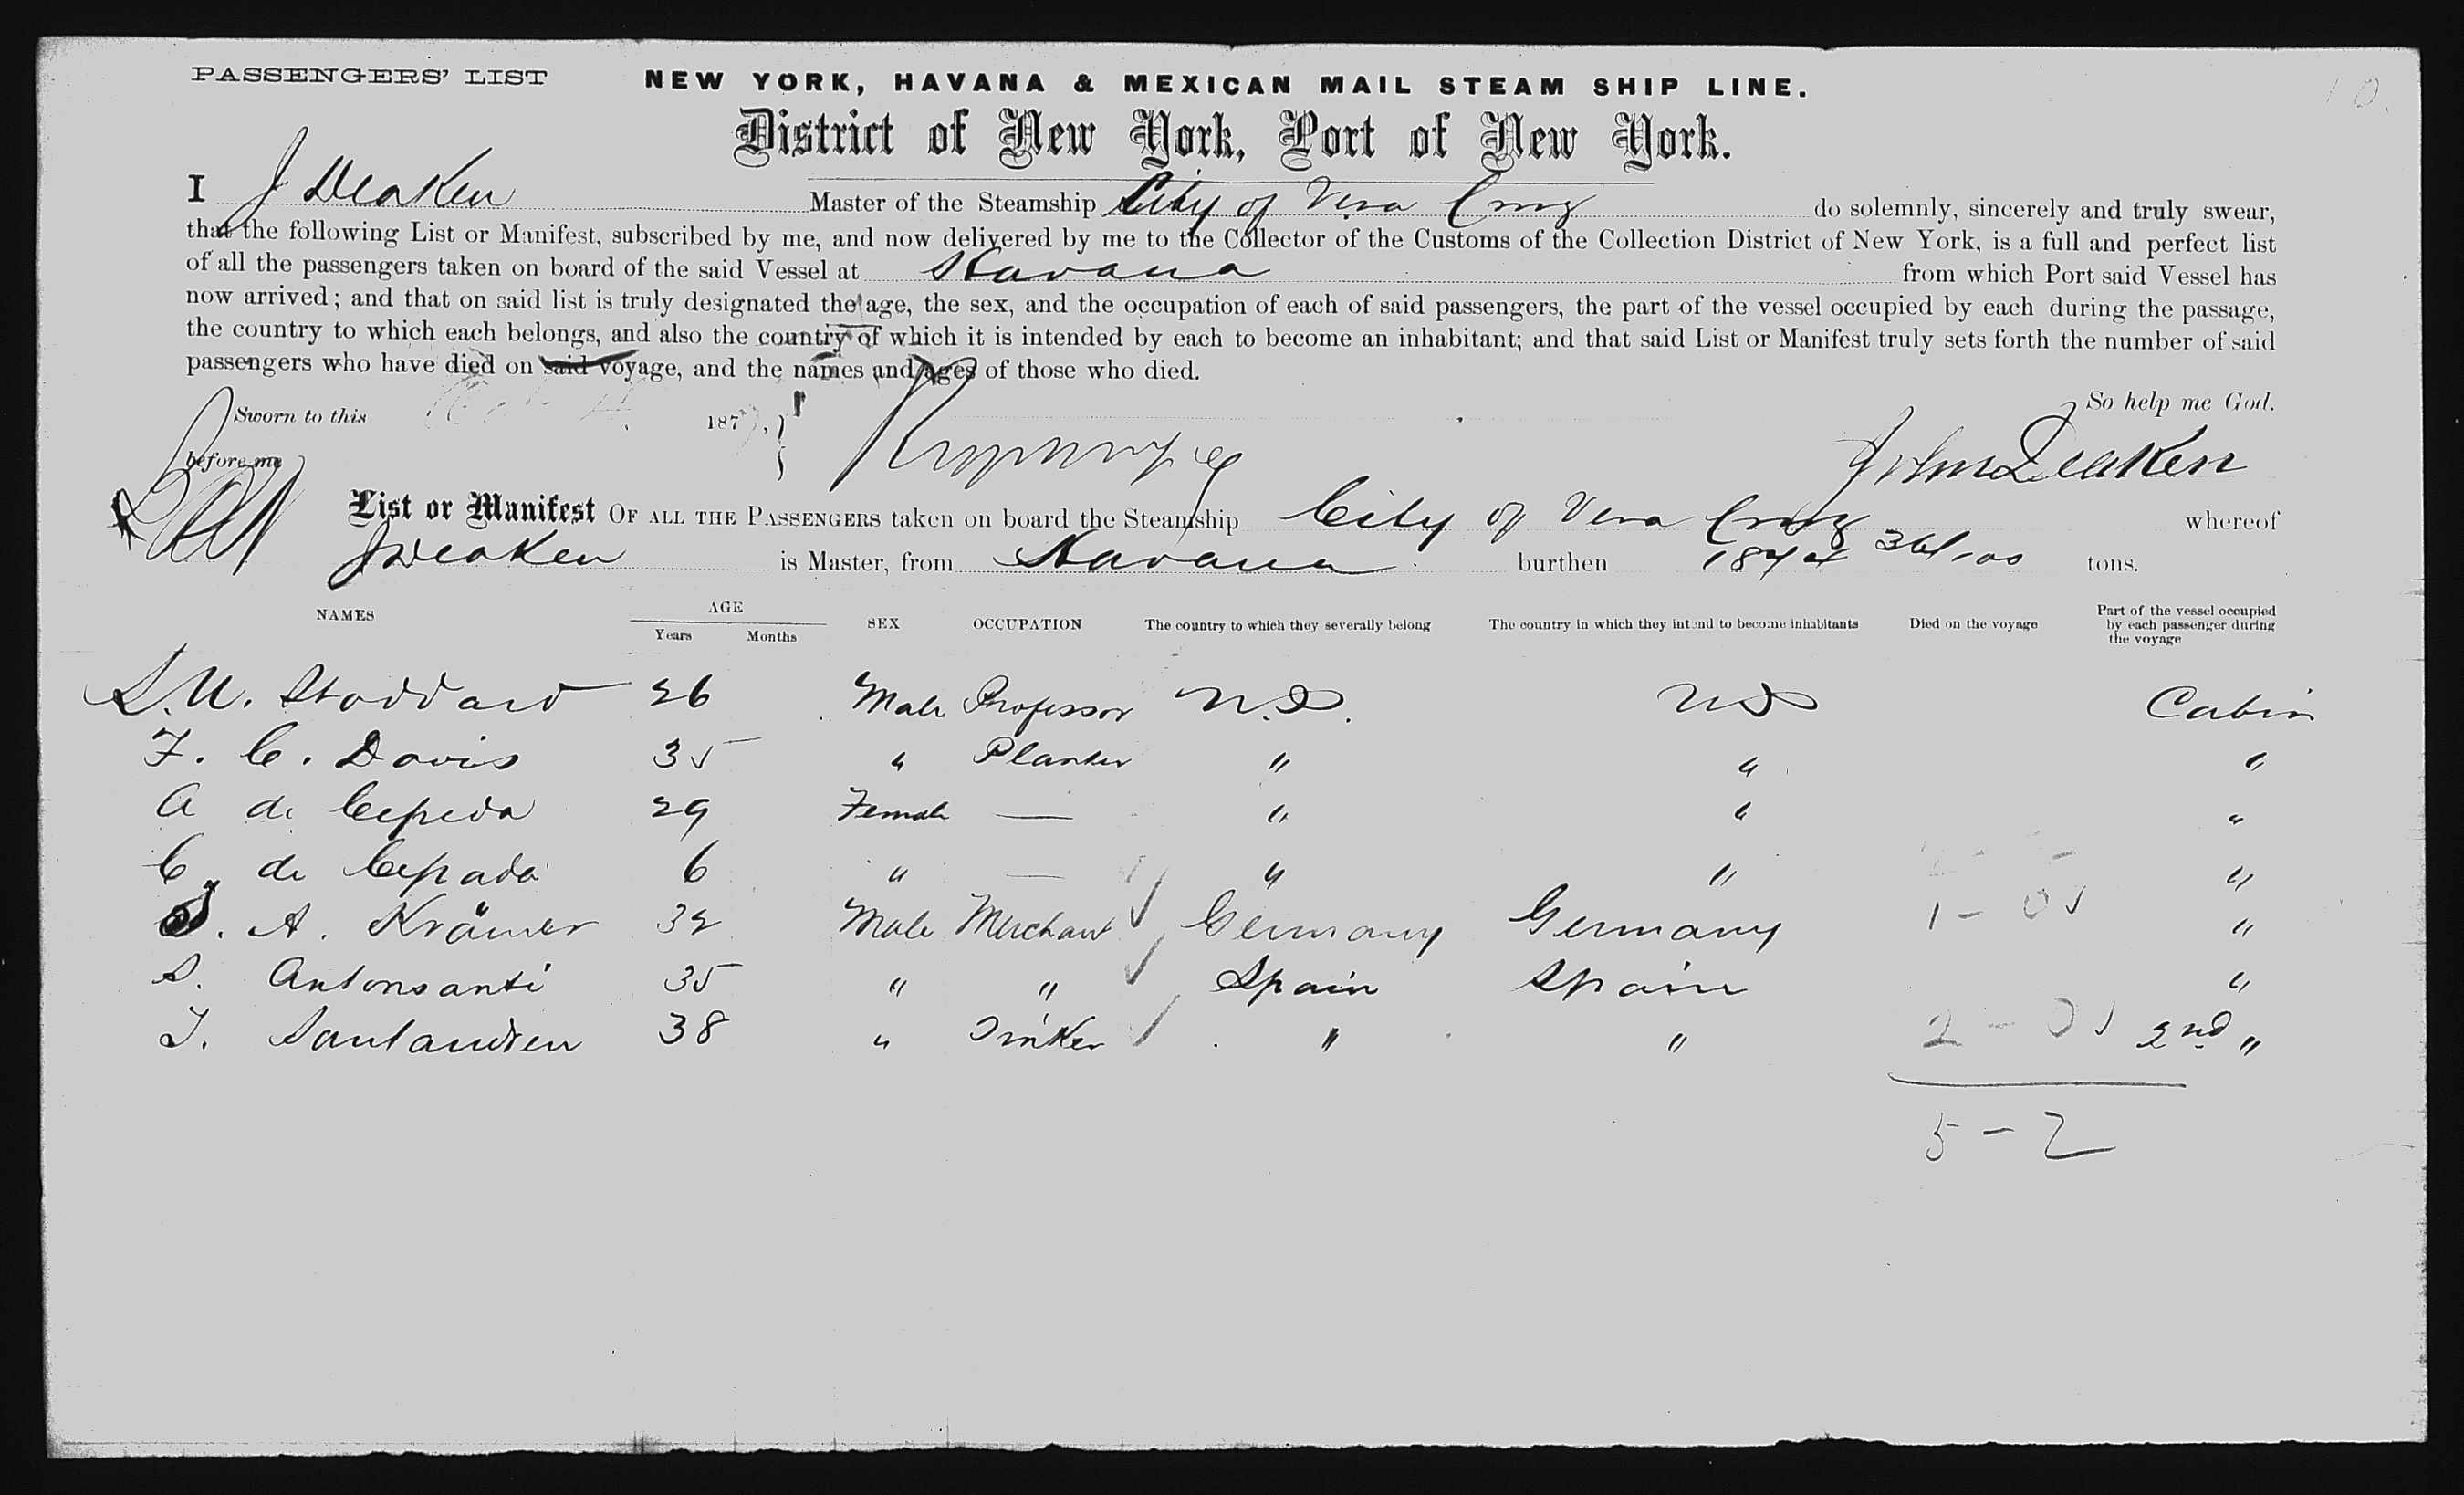 PASSENGERS' LIST NEW YORK, HAVANA & MEXICAN MAIL STEAM SHIP LINE. 10.
District of New York, Port of New York.
I J Deaken Master of the Steamship City of Vera Cruz do solemnly, sincerely and truly swear,
that the following List or Manifest, subscribed by me, and now delivered by me to the Collector of the Customs of the Collection District of New York, is a full and perfect list
of all the passengers taken on board of the said Vessel at Havana from which Port said Vessel has
now arrived; and that on said list is truly designated the age, the sex, and the occupation of each of said passengers, the part of the vessel occupied by each during the passage,
the country to which each belongs, and also the country of which it is intended by each to become an inhabitant; and that said List or Manifest truly sets forth the number of said
passengers who have died on said voyage, and the names and ages of those who died.
So help me God.
Sworn to this 187
before me John Deaken
List or Manifest OF ALL THE PASSENGERS taken on board the Steamship City of Vera Cruz whereof
J Deaken is Master, from Havana burthen tons.
NAMES AGE Years Months SEX OCCUPATION The country to which they severally belong The country in which they intend to become inhabitants Died on the voyage Part of the vessel occupied by each passenger during the voyage
S. W. Stoddard 26 Male Professor U.S. U S Cabin
F. C. Davis 35 " Planter " " "
A de Cepeda 29 Female — " " "
C de Cepada 6 " — " " "
S. A. Krämer 32 Male Merchant Germany Germany 1 - "
S. Antonsanti 35 " " Spain Spain "
J. Santandreu 38 " Tinker " " 2 - 2nd "
5 - 2